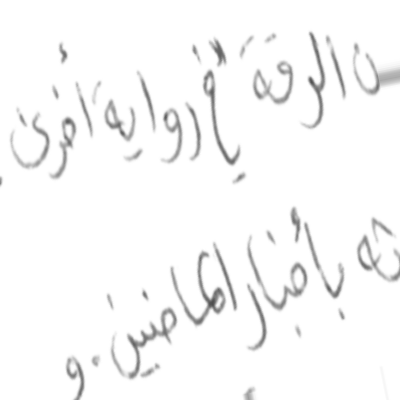 الرقة " في رواية أخرى .
بأخبار الماضيين . و